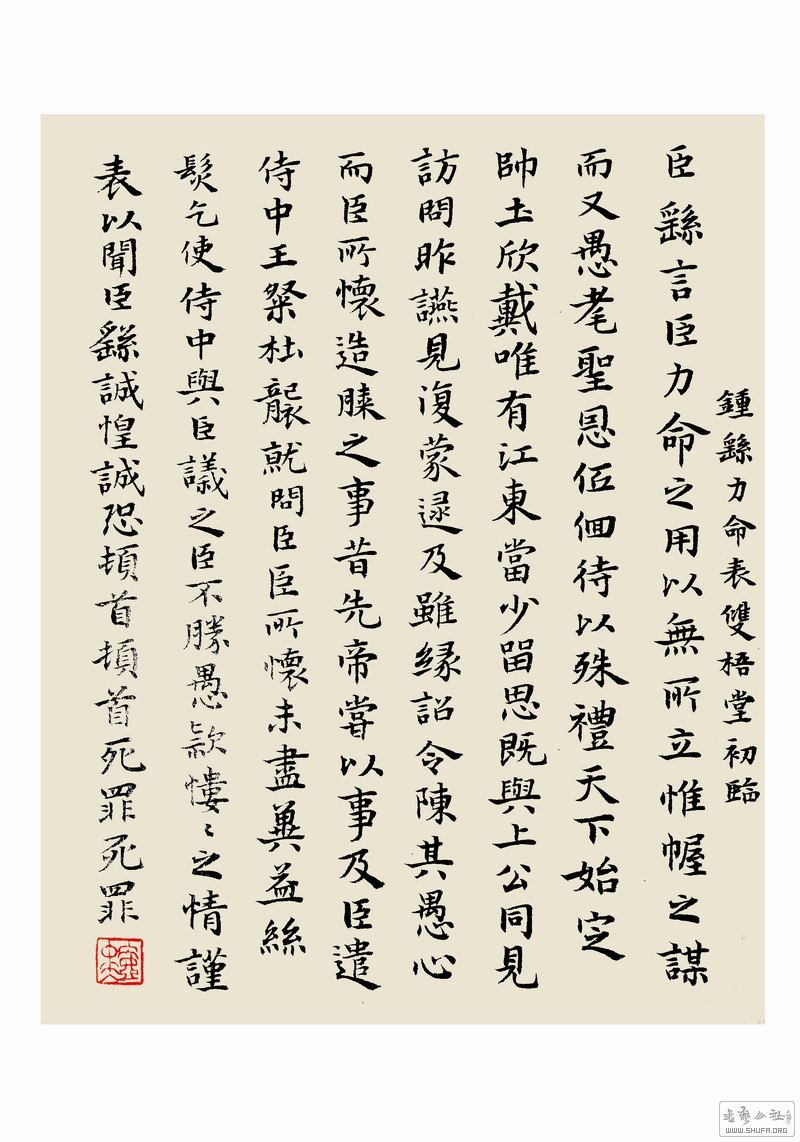 鍾繇力命表雙梧堂初臨
臣繇言臣力命之用以無所立惟幄之謀
而又愚耄聖恩低徊待以殊禮天下始定
帥土欣戴唯有江東當少留思既與上公同見
訪問昨讌見復蒙逯及雖緣詔令陳其愚心
而臣所懷造膝之事昔先帝嘗以事及臣遣
侍中王粲杜襲就問臣臣所懷未盡冀益絲
髮乞使侍中與臣議之臣不勝愚款慺〻之情謹
表以聞臣繇誠惶誠恐頓首頓首死罪死罪
書藝公社
WWW.SHUFA.ORG